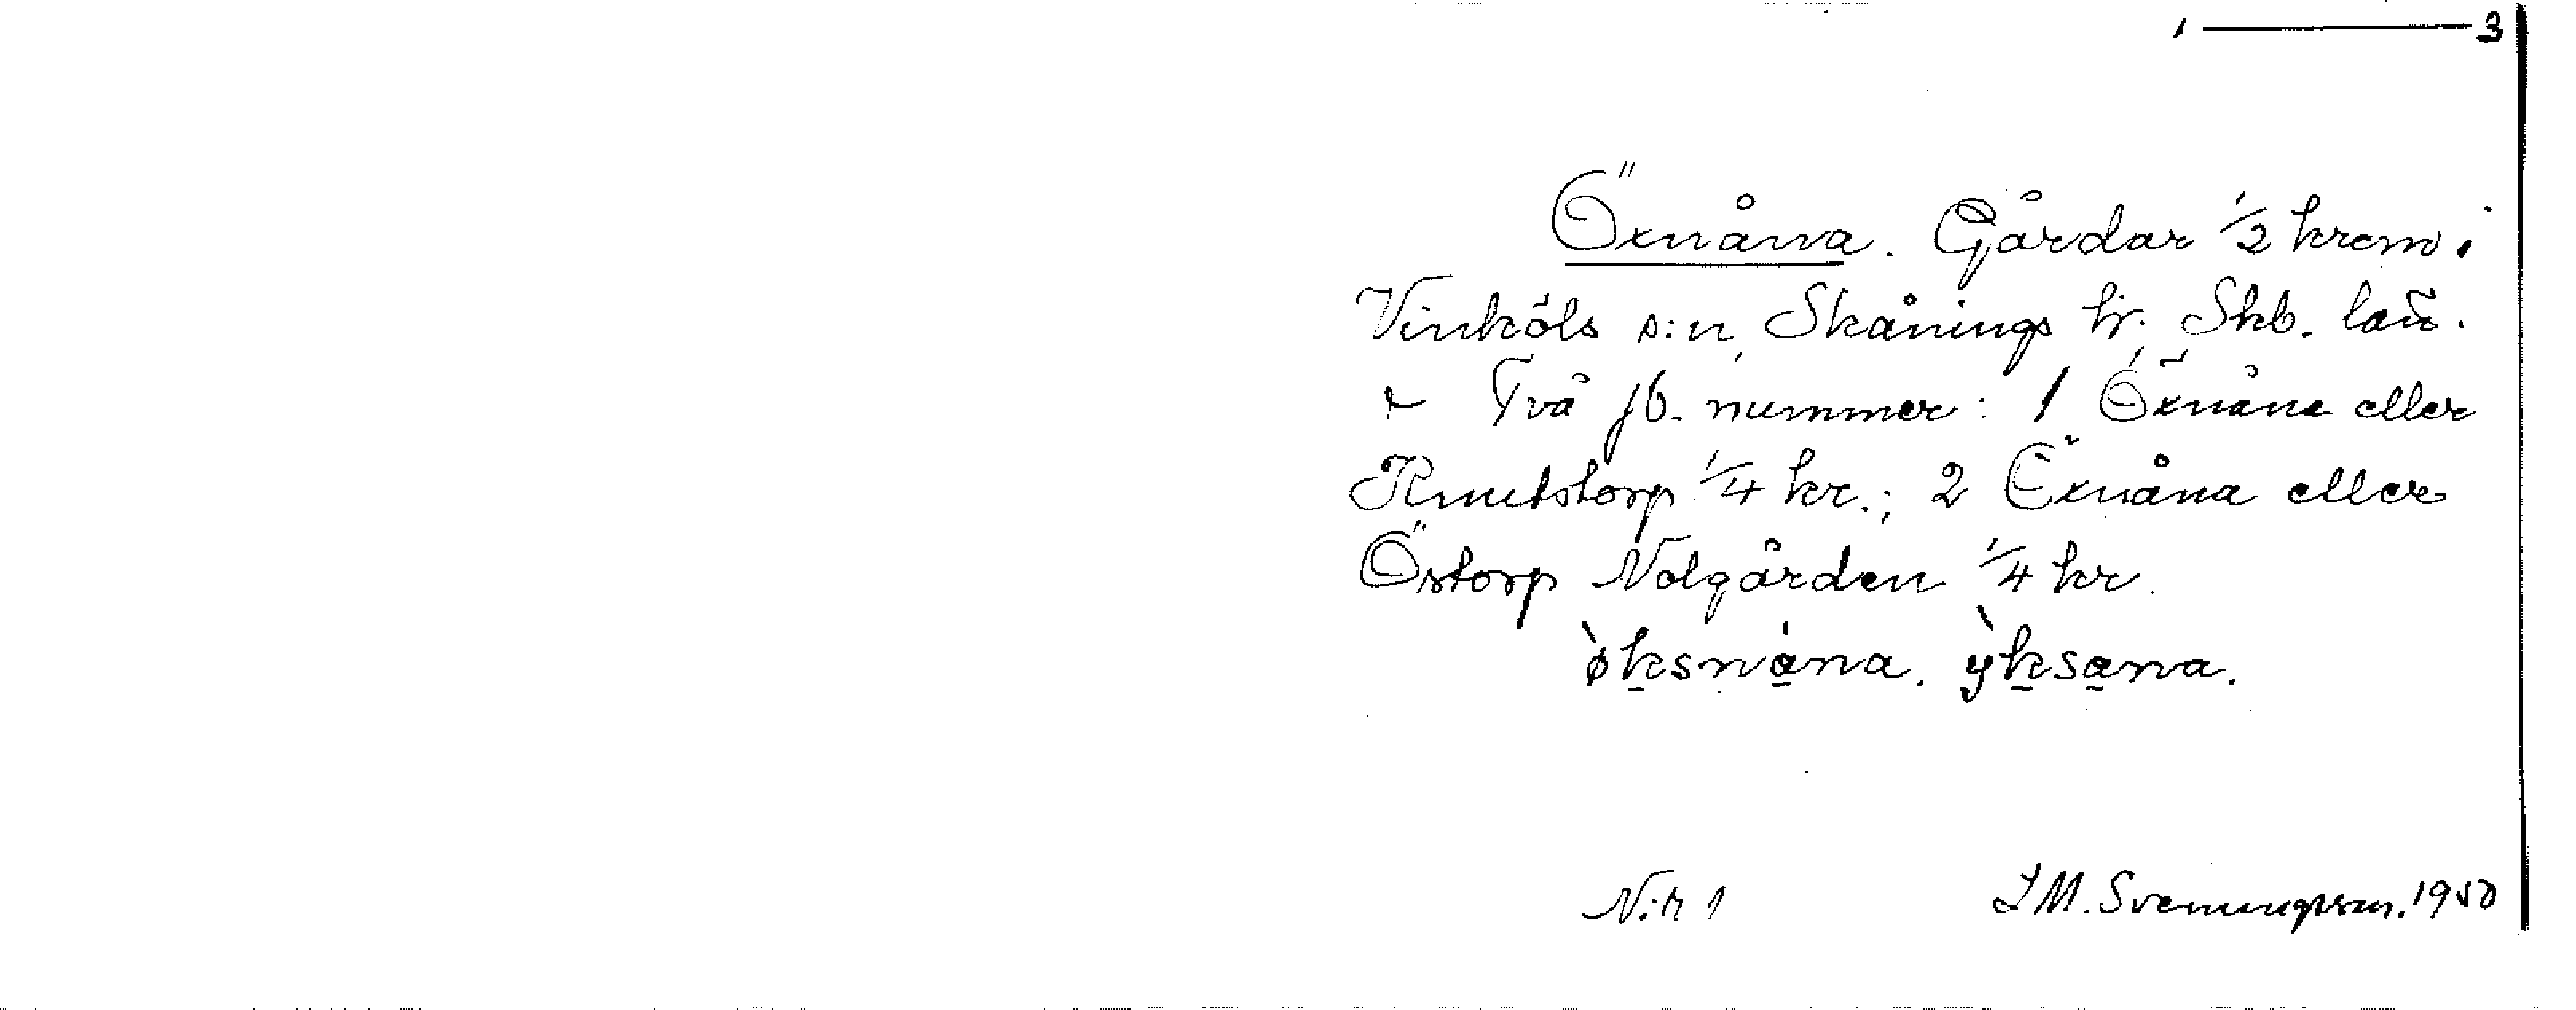 1 — 3
Öxnåna. Gårdar 1/2 krom i
Vinköls s:n, Skånings hr. Skb. län.
Två jb. nummer: 1 Öxnåna eller
Knutstorp 1/4 kr.; 2 Öxnåna eller
Östorp Nolgården 1/4 kr.
ø̀ksnána. ỳksana.
N:r 1 I M. Sveningsson. 1950